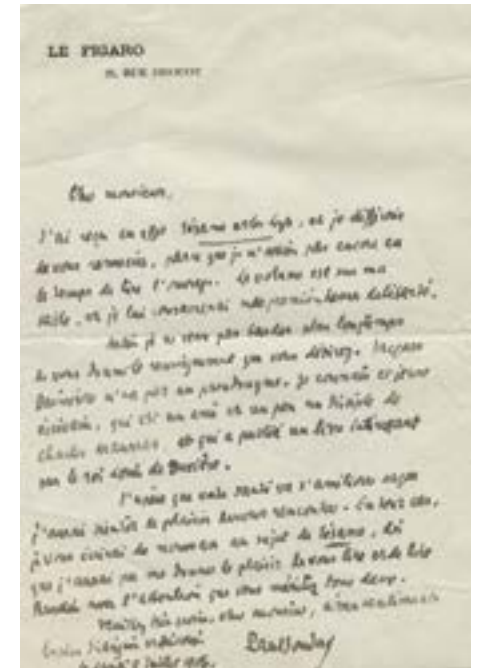 LE FIGARO
26, RUE DROUOT
Cher monsieur,
J'ai reçu en effet Sésame et les Lys, et je différais
de vous remercier, parce que je n'avais pas encore eu
le temps de lire l'ouvrage. Le volume est sur ma
table, et je lui consacrerai ma première heure de liberté.
Mais je ne veux pas tarder plus longtemps
à vous donner le renseignement que vous désirez. Jacques
n'est pas un pseudonyme. Je connais ce jeune
écrivain, qui est un ami et un peu un disciple de
Charles Maurras et qui a publié un livre intéressant
sur le roi Louis de Bavière.
J'espère que votre santé va s'améliorer et que
j'aurai bientôt le plaisir de vous rencontrer. En tout cas,
je vous écrirai de nouveau au sujet de Sésame, dès
que j'aurai pu me donner le plaisir de vous lire et de lire
Ruskin avec l'attention que vous méritez tous deux.
Veuillez bien croire, cher monsieur, à mes sentiments
Paul Souday